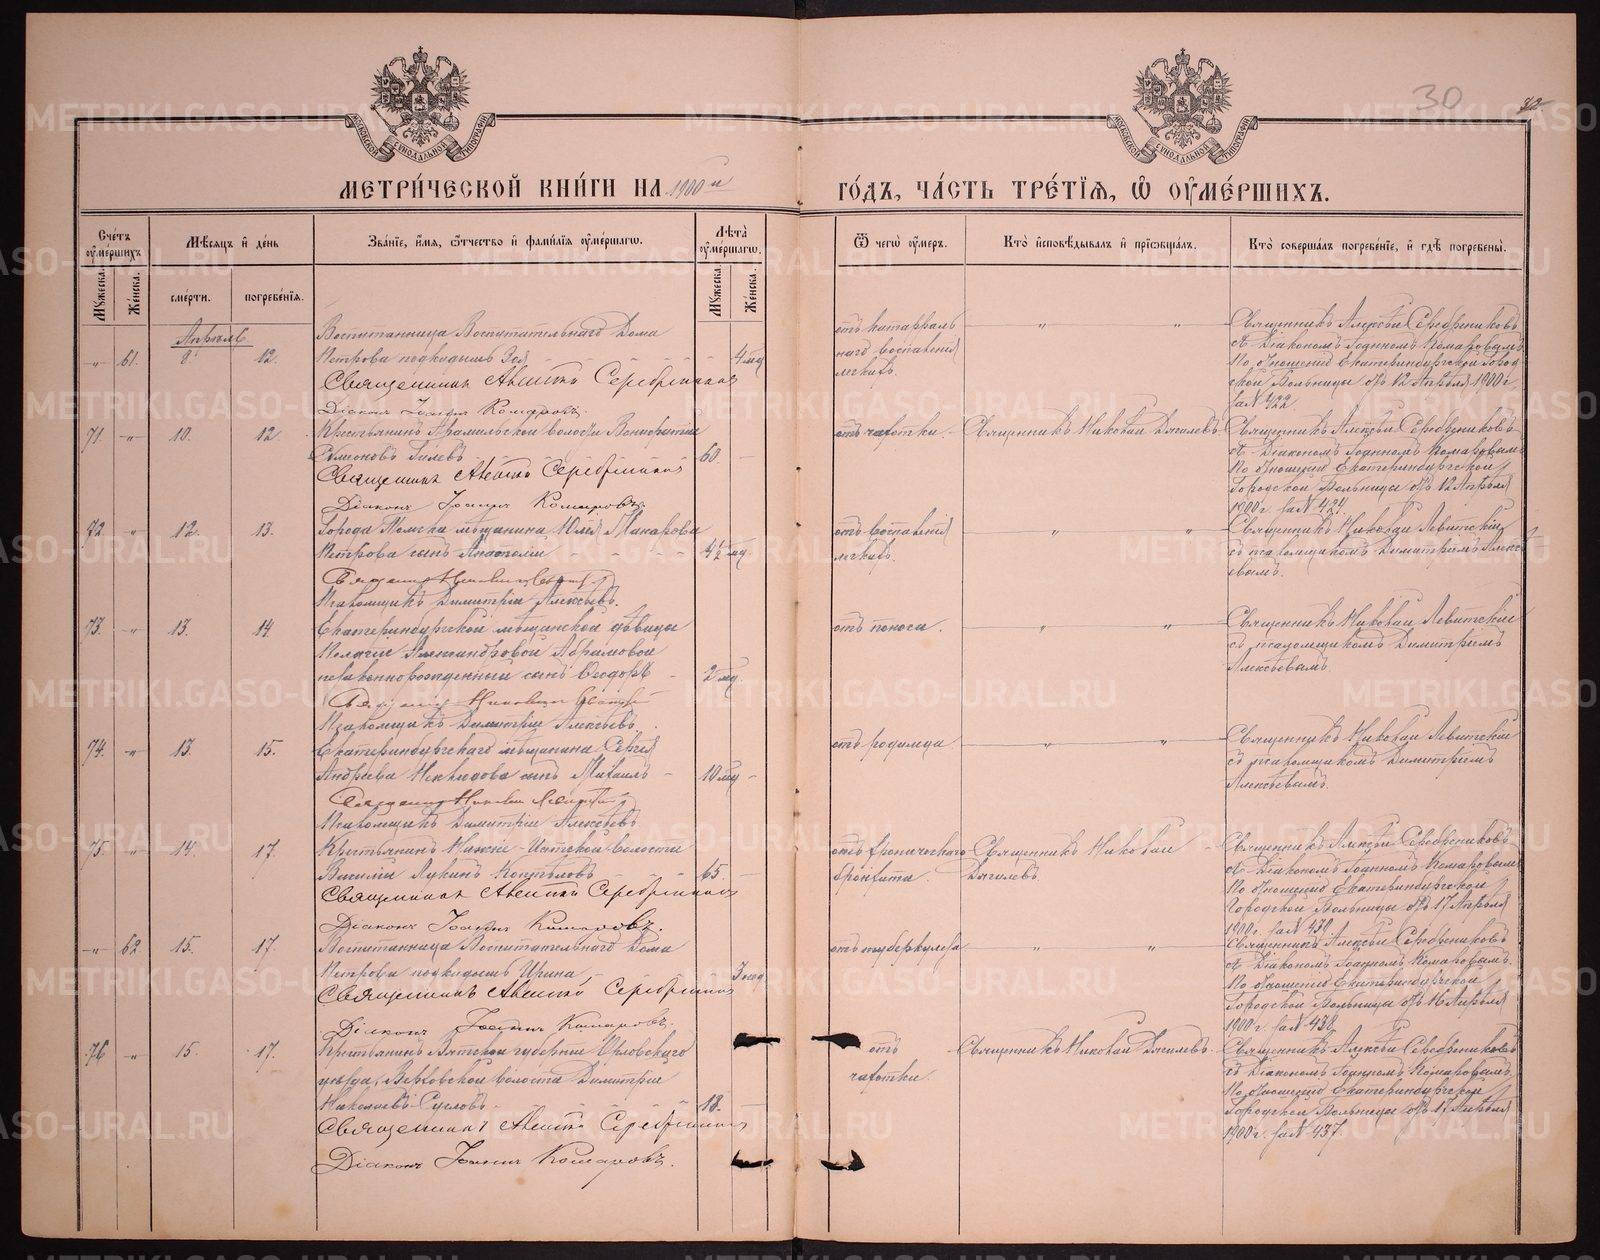 30
МЕТРИ́ЧЕСКОЙ КНИ́ГИ НА 1900й
ГО́ДЪ, ЧА́СТЬ ТРЕ́ТІѦ, Ѡ҆ ОУ҆МЕ́РШИХЪ.
Сче́тъ оу҆ме́ршихъ
Мѣ́сѧцъ и҆ де́нь
Зва́нїе, и҆́мѧ, ѻ҆́тчество и҆ фами́лїѧ оу҆ме́ршагѡ.
Лѣ́та оу҆ме́ршагѡ.
Мꙋ́жеска.
Же́нска.
сме́рти.
погребе́нїѧ.
Мꙋ́жеска.
Же́нска.
Ѿ чегѡ̀ оу҆́меръ.
Кто̀ и҆сповѣ́дывалъ и҆ прїѡбща́лъ.
Кто̀ соверша́лъ погребе́нїе, и҆ гдѣ̀ погребены̀.
Апрѣль
„ 61. 8. 12.
Воспитанница Воспитательнаго Дома
Петрова подкидышъ Зоя 4 мц
Священникъ Алексѣй Серебренниковъ
Діаконъ Іоаннъ Комаровъ.
отъ катарраль
наго воспаленія
легкихъ.
„ „
Священникъ Алексѣй Серебрениковъ
съ Діакономъ Іоанномъ Комаровымъ
По отношенію Екатеринбургской Город
ской Больницы отъ 12 Апрѣля 1900 г.
за № 422.
71. „ 10. 12.
Крестьянинъ Арамильской волости
Симеоновъ Гилевъ 60.
Священникъ Алексѣй Серебренниковъ
Діаконъ Іоаннъ Комаровъ.
отъ чахотки.
Священникъ Николай Дягилевъ
Священникъ Алексѣй Серебрениковъ
съ Діакономъ Іоанномъ Комаровымъ
По отношенію Екатеринбургской
Городской Больницы отъ 12 Апрѣля
1900 г. за № 424.
72 „ 12. 13.
Города мѣщанина Макарова
Петрова сынъ Анатолій 4½ мц.
Священникъ Николай Левитскій
Псаломщикъ Димитрій Алексѣевъ.
отъ воспаленія
легкихъ.
„ „
Священникъ Николай Левитскій
съ псаломщикомъ Димитріемъ Алексѣ
евымъ.
73. „ 13. 14
Екатеринбургской мѣщанской дѣвицы
Пелагіи Александровой Абрамовой
незаконнорожденный сынъ Ѳеодоръ 2 мц.
Священникъ Николай Левитскій
Псаломщикъ Димитрій Алексѣевъ.
отъ поноса.
„ „
Священникъ Николай Левитскій
съ псаломщикомъ Димитріемъ
Алексѣевымъ.
74. „ 13. 15.
Екатеринбургскаго мѣщанина Сергѣя
Андреева Неклюдова сынъ Михаилъ 10 мц
Священникъ Николай Левитскій
Псаломщикъ Димитрій Алексѣевъ
отъ родимца
„ „
Священникъ Николай Левитскій
съ псаломщикомъ Димитріемъ
Алексѣевымъ.
75. „ 14. 17.
Крестьянинъ Нижне-Исетской волости
Василій Лукинъ Коптѣловъ 65.
Священникъ Алексѣй Серебренниковъ
Діаконъ Іоаннъ Комаровъ.
отъ хроническаго
бронхита
Священникъ Николай
Дягилевъ
Священникъ Алексѣй Серебрениковъ
съ Діакономъ Іоанномъ Комаровымъ
По отношенію Екатеринбургской
Городской Больницы отъ 17 Апрѣля
1900 г. за № 439.
„ 62 15. 17.
Воспитанница Воспитательнаго Дома
Петрова подкидышъ Ирина 3 мц.
Священникъ Алексѣй Серебренниковъ
Діаконъ Іоаннъ Комаровъ.
отъ туберкулеза
„ „
Священникъ Алексѣй Серебрениковъ
съ Діакономъ Іоанномъ Комаровымъ.
По отношенію Екатеринбургской
Городской Больницы отъ 16 Апрѣля
1900 г. за № 438
76 „ 15. 17.
Крестьянинъ Вятской губерніи Орловскаго
уѣзда, Верховской волости Димитрій
Николаевъ Сусловъ 18.
Священникъ Алексѣй Серебренниковъ
Діаконъ Іоаннъ Комаровъ.
отъ
чахотки.
Священникъ Николай Дягилевъ
Священникъ Алексѣй Серебрениковъ
съ Діакономъ Іоанномъ Комаровымъ
По отношенію Екатеринбургской
Городской Больницы отъ 17 Апрѣля
1900 г. за № 437.
METRIKI.GASO-URAL.RU